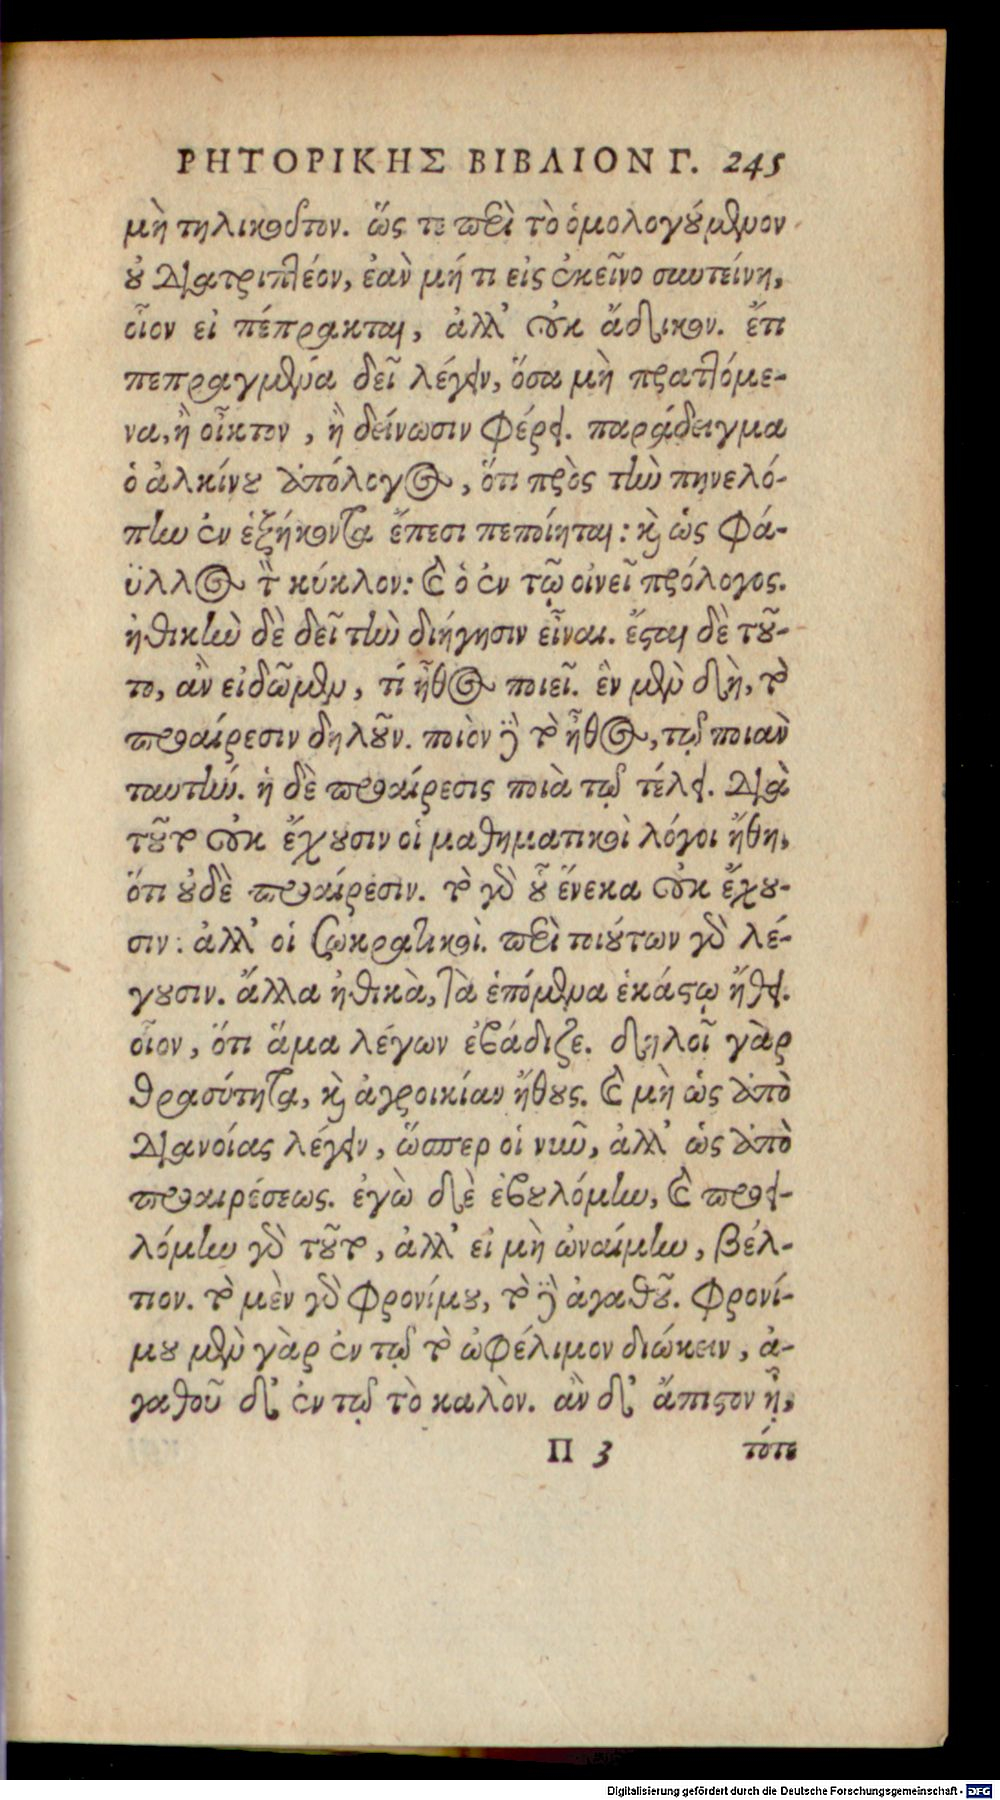 ΡΗΤΟΡΙΚΗΣ ΒΙΒΛΙΟΝ Γ. 245
μὴ τηλικοῦτον. ὥς τε περὶ τὸ ὁμολογούμενον
οὐ διατριπτέον, ἐὰν μή τι εἰς ἐκεῖνο συντείνη,
οἷον εἰ πέπρακται, ἀλλ' οὐκ ἄδικον. ἔτι
πεπραγμένα δεῖ λέγειν, ὅσα μὴ πραττόμε-
να, ἢ οἶκτον, ἢ δείνωσιν φέρει. παράδειγμα
ὁ ἀλκίνου ἀπόλογος, ὅτι πρὸς τὴν πηνελό-
πην ἐν ἑξήκοντα ἔπεσι πεποίηται: καὶ ὡς φά-
ϋλλος τὸν κύκλον: καὶ ὁ ἐν τῷ οἰνεῖ πρόλογος.
ἠθικὴν δὲ δεῖ τὴν διήγησιν εἶναι. ἔσται δὲ τοῦ-
το, ἂν εἰδῶμεν, τί ἦθος ποιεῖ. ἓν μὲν δὴ, τὸ
προαίρεσιν δηλοῦν. ποιὸν δὲ τὸ ἦθος, τῷ ποιὰν
ταυτήν. ἡ δὲ προαίρεσις ποιὰ τῷ τέλει. διὰ
τοῦτο οὐκ ἔχουσιν οἱ μαθηματικοὶ λόγοι ἤθη,
ὅτι οὐδὲ προαίρεσιν. τὸ γὰρ οὗ ἕνεκα οὐκ ἔχου-
σιν: ἀλλ' οἱ Σωκρατικοὶ. περὶ τοιούτων γὰρ λέ-
γουσιν. ἄλλα ἠθικὰ, τὰ ἑπόμενα ἑκάστῳ ἤθει.
οἷον, ὅτι ἅμα λέγων ἐβάδιζε. δηλοῖ γὰρ
θρασύτητα, καὶ ἀγροικίαν ἤθους. καὶ μὴ ὡς ἀπὸ
διανοίας λέγειν, ὥσπερ οἱ νῦν, ἀλλ' ὡς ἀπὸ
προαιρέσεως. ἐγὼ δὲ ἐβουλόμην, καὶ προει-
λόμην γὰρ τοῦτο, ἀλλ' εἰ μὴ ὠναίμην, βέλ-
τιον. τὸ μὲν γὰρ φρονίμου, τὸ δὲ ἀγαθοῦ. φρονί-
μου μὲν γὰρ ἐν τῷ τὸ ὠφέλιμον διώκειν, ἀ-
γαθοῦ δ' ἐν τῷ τὸ καλὸν. ἂν δ' ἄπιστον ᾖ,
Π 3 τότε
Digitalisierung gefördert durch die Deutsche Forschungsgemeinschaft - DFG